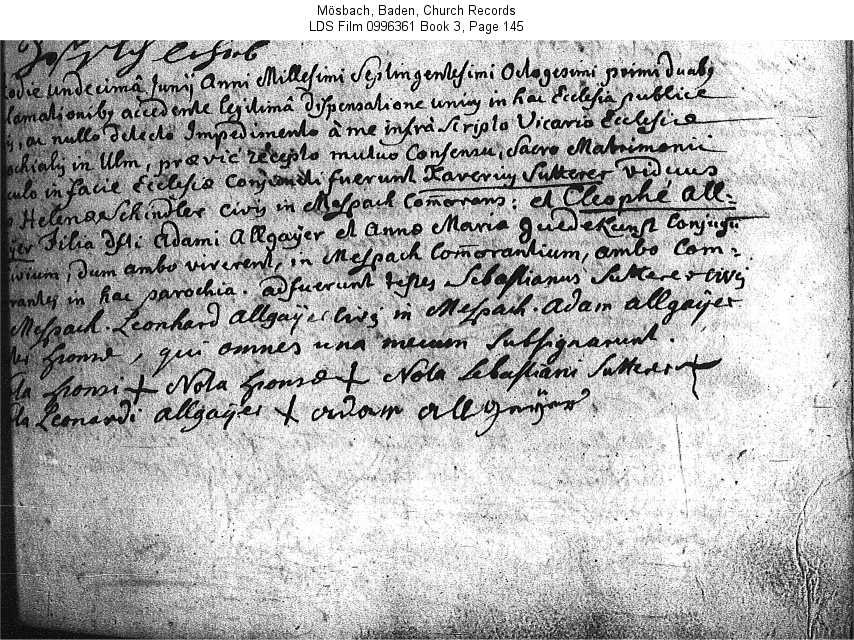 Mösbach, Baden, Church Records
LDS Film 0996361 Book 3, Page 145
odie undecimâ Junij Anni Millesimi Septingentesimi Octogesimi primi duaby
lamationiby accedente legitimâ dispensatione unius in hac Ecclesia publice
ac nullo detecto Impedimento â me infrà scripto Vicario Ecclesiæ
ochialis in Ulm, prævie recepto mutuo Consensu, Sacro Matrimonii
culo in facie Ecclesiæ Conjuncti fuerunt Xaverius Sutterer viduus
Helenæ Schindler civis in Mespach Com̄orans: et Cleophé all-
ÿer Filia dsti Adami Allgaÿer et Annæ Mariæ Conjugu
ivium, dum ambo viverent, in Mespach Com̄orantium, ambo Com-
rantes in hac parochia. adfuerunt testes Sebastianus Sutterer civis
Mespach. Leonhard allgaÿer Civis in Mespach. Adam allgaÿer
sponsæ, qui omnes una mecum subsignarunt.
ta sponsi + Nota sponsæ + Nota Sebastiani Sutterer +
ta Leonardi allgaÿer + adam allgaÿer